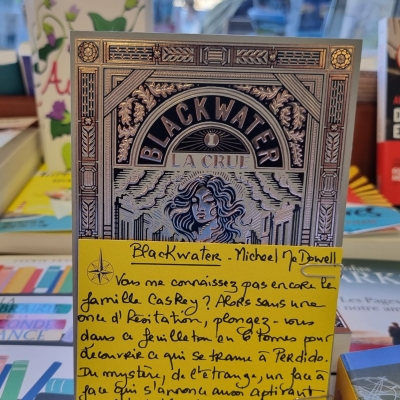 BLACKWATER
I
LA CRUE
Blackwater - Michael McDowell
Vous ne connaissez pas encore la
famille Caskey? Alors sans une
once d'hésitation, plongez-vous
dans ce feuilleton en 6 tomes pour
découvrir ce qui se trame à Perdido.
Du mystère, de l'étrange, un face à
face qui s'annonce aussi captivant